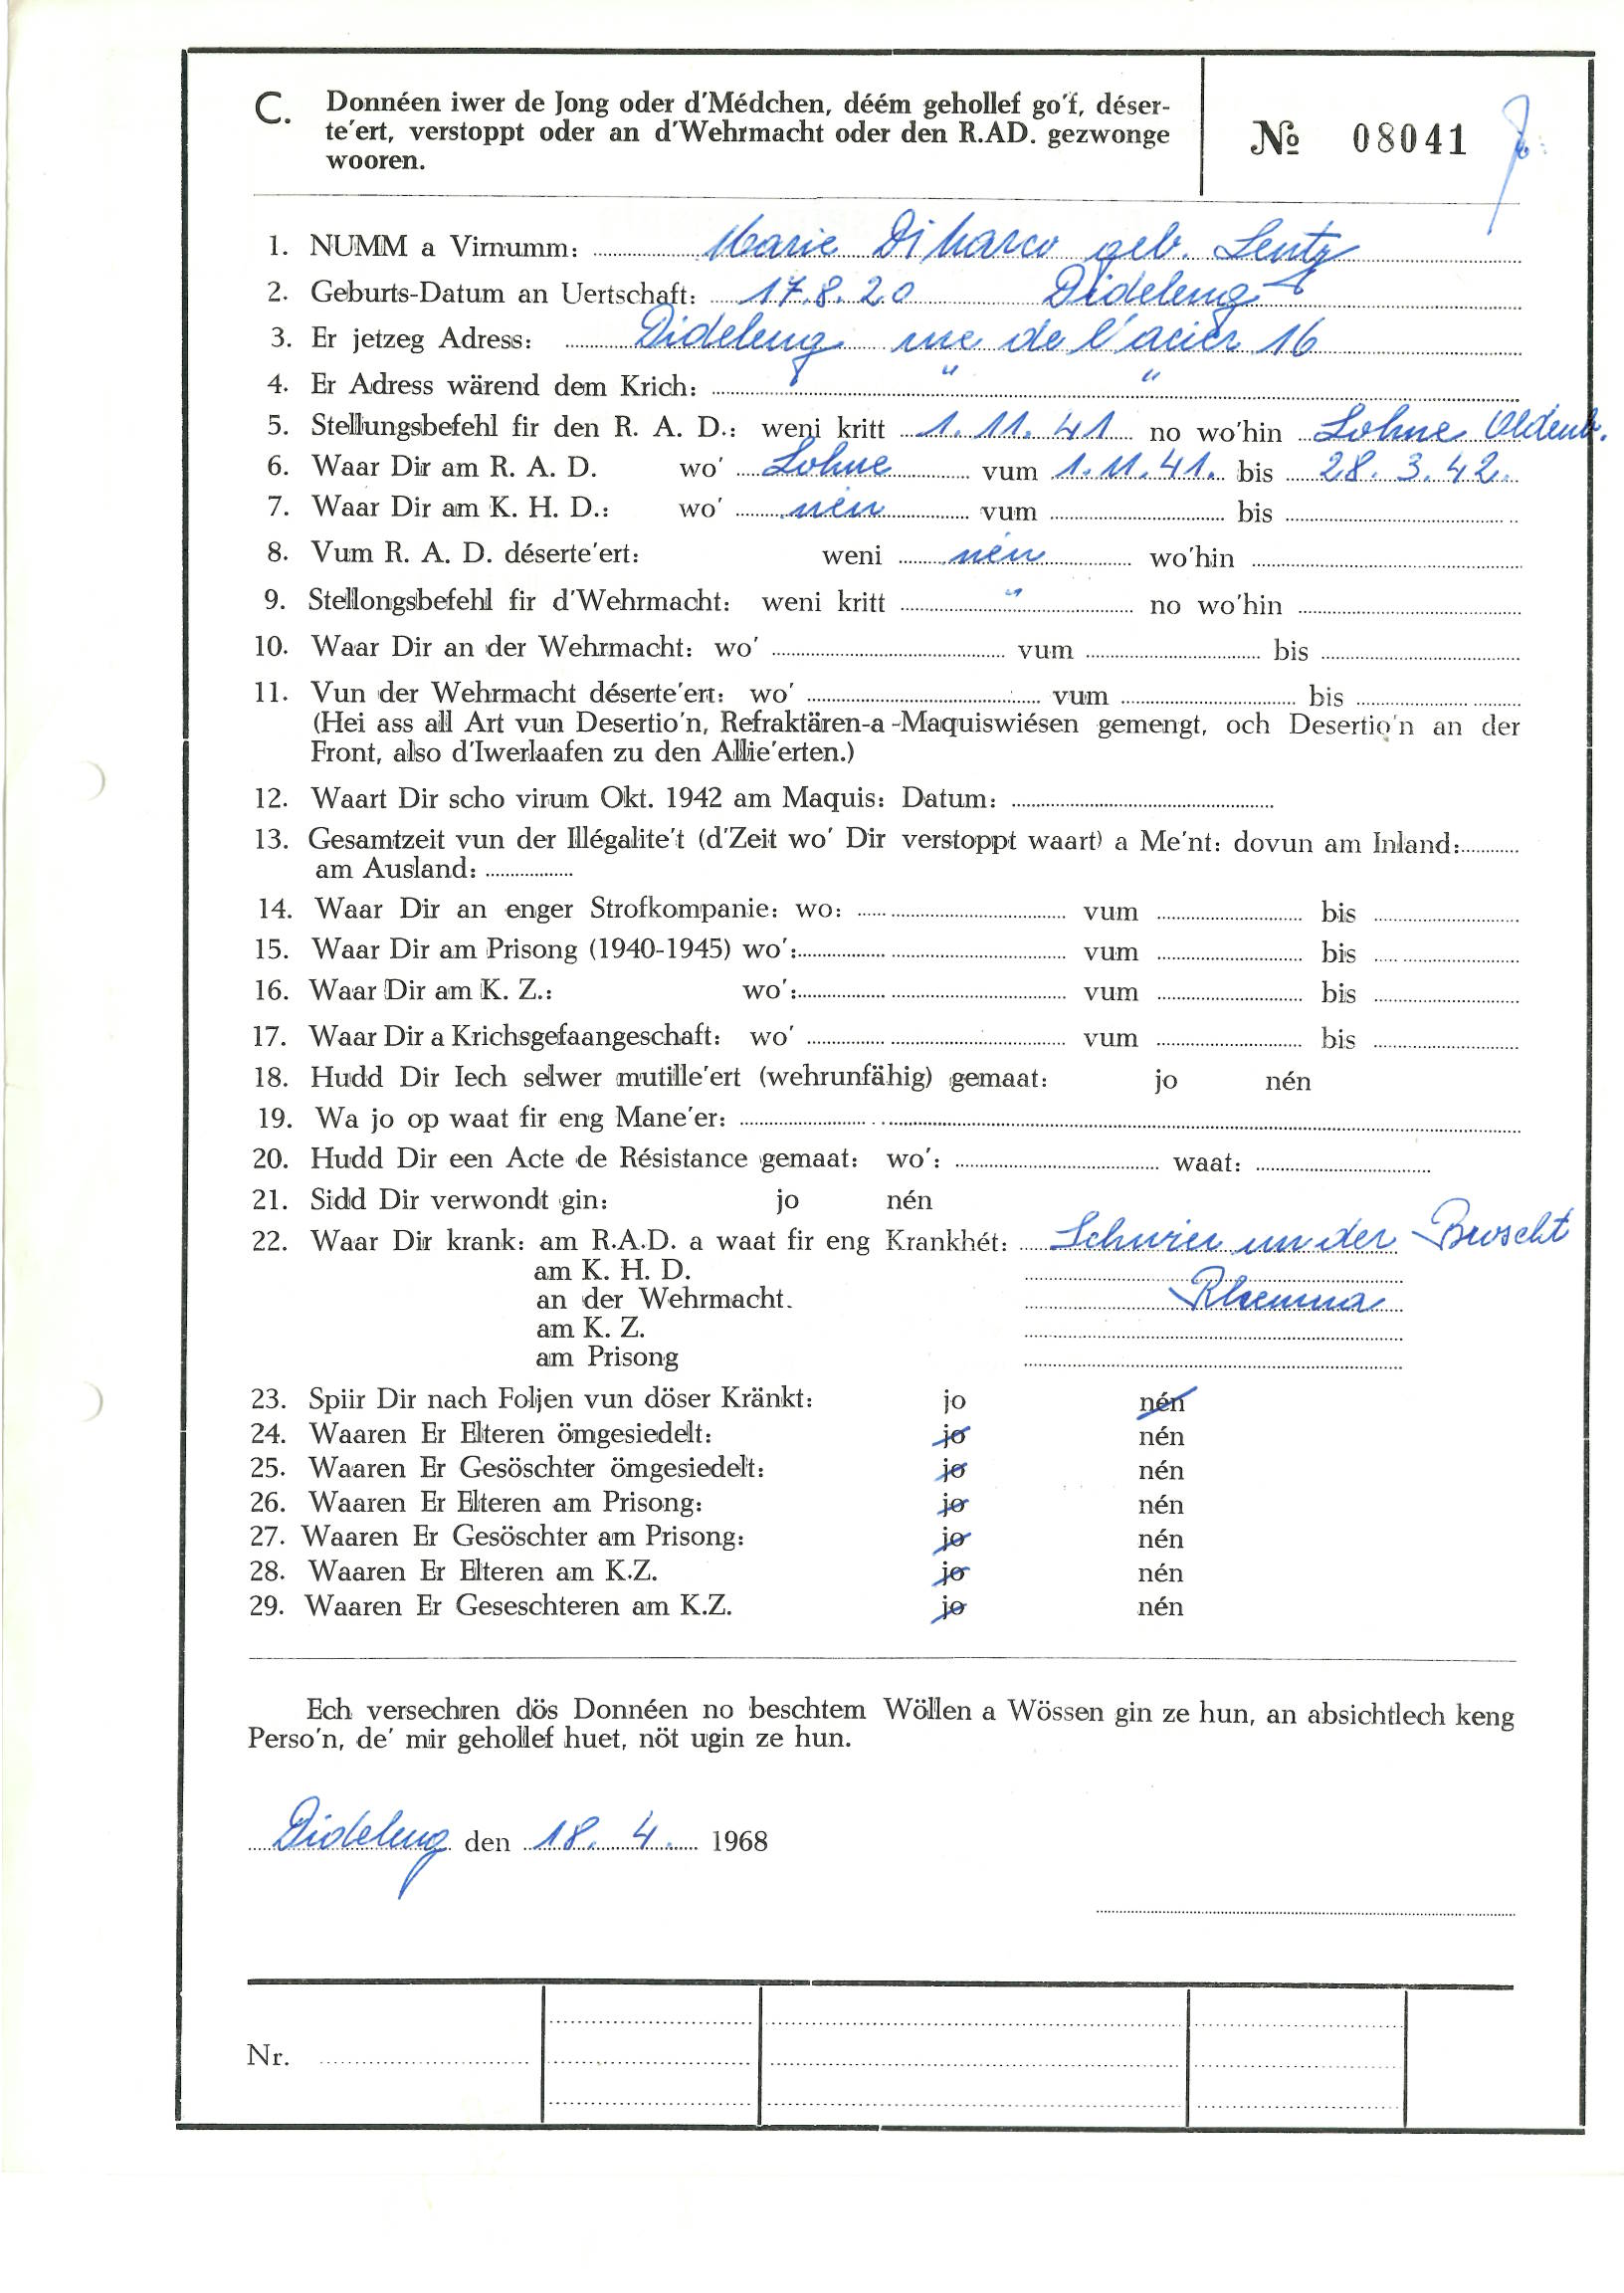 C. Donnéen iwer de Jong oder d'Médchen, déém gehollef go'f, déser-
te'ert, verstoppt oder an d'Wehrmacht oder den R.AD. gezwonge
wooren.
№ 08041
1. NUMM a Virnumm: Marie Di Marco geb. Lentz
2. Geburts-Datum an Uertschaft: 17.8.20 Dideleng
3. Er jetzeg Adress: Dideleng rue de l'acier 16
4. Er Adress wärend dem Krich: " "
5. Stellungsbefehl fir den R. A. D.: weni kritt 1.11.41 no wo'hin Lohne Oldenb.
6. Waar Dir am R. A. D. wo' Lohne vum 1.11.41. bis 28.3.42.
7. Waar Dir am K. H. D.: wo' nén vum bis
8. Vum R. A. D. déserte'ert: weni nén wo'hin
9. Stellongsbefehl fir d'Wehrmacht: weni kritt " no wo'hin
10. Waar Dir an der Wehrmacht: wo' vum bis
11. Vun der Wehrmacht déserte'ert: wo' vum bis
(Hei ass all Art vun Desertio'n, Refraktären-a-Maquiswiésen gemengt, och Desertio'n an der
Front, also d'Iwerlaafen zu den Allie'erten.)
12. Waart Dir scho virum Okt. 1942 am Maquis: Datum:
13. Gesamtzeit vun der Illégalite't (d'Zeit wo' Dir verstoppt waart) a Me'nt: dovun am Inland:
am Ausland:
14. Waar Dir an enger Strofkompanie: wo: vum bis
15. Waar Dir am Prisong (1940-1945) wo': vum bis
16. Waar Dir am K. Z.: wo': vum bis
17. Waar Dir a Krichsgefaangeschaft: wo' vum bis
18. Hudd Dir Iech selwer mutille'ert (wehrunfähig) gemaat: jo nén
19. Wa jo op waat fir eng Mane'er:
20. Hudd Dir een Acte de Résistance gemaat: wo': waat:
21. Sidd Dir verwondt gin: jo nén
22. Waar Dir krank: am R.A.D. a waat fir eng Krankhét: Schwier un der Broscht
am K. H. D.
an der Wehrmacht. Rheuma
am K. Z.
am Prisong
23. Spiir Dir nach Foljen vun döser Kränkt: jo nén
24. Waaren Er Elteren ömgesiedelt: jo nén
25. Waaren Er Gesöschter ömgesiedelt: jo nén
26. Waaren Er Elteren am Prisong: jo nén
27. Waaren Er Gesöschter am Prisong: jo nén
28. Waaren Er Elteren am K.Z. jo nén
29. Waaren Er Geseschteren am K.Z. jo nén
Ech versechren dös Donnéen no beschtem Wöllen a Wössen gin ze hun, an absichtlech keng
Perso'n, de' mir gehollef huet, nöt ugin ze hun.
Dideleng den 18. 4. 1968
Nr.